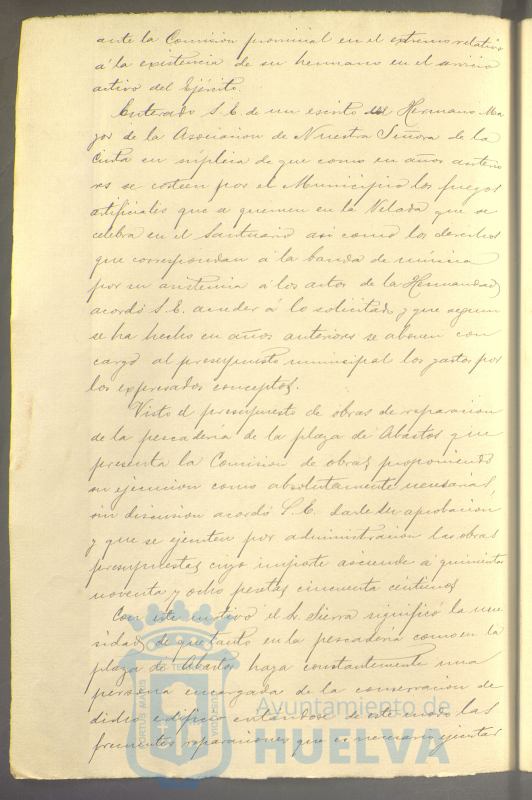 ante la Comision provincial en el extremo relativo
á la existencia de su hermano en el servicio
activo del Ejército.
Enterado S.E. de un escrito del Hermano Ma-
yor de la Asociacion de Nuestra Señora de la
Cinta en súplica de que como en años anterio-
res se costeen por el Municipio los fuegos
artificiales que se quemen en la Velada que se
celebra en el Santuario asi como los derechos
que correspondan á la banda de música
por su asistencia á los actos de la Hermandad,
acordó S.E. acceder á lo solicitado y que segun
se ha hecho en años anteriores se abonen con
cargo al presupuesto municipal los gastos por
los expresados conceptos.
Visto el presupuesto de obras de reparacion
de la pescaderia de la plaza de Abastos que
presenta la Comision de obras, proponiendo
su ejecucion como absolutamente necesarias,
sin discusion acordó S.E. darle su aprobacion
y que se ejecuten por administracion las obras
presupuestas cuyo importe asciende á quinientas
noventa y ocho pesetas cincuenta céntimos.
Con este motivo el Sr. Sierra significó la nece-
sidad de que tanto en la pescaderia como en la
plaza de Abastos haya constantemente una
persona encargada de la conservacion de
dicho edificio evitándose de este modo las
frecuentes reparaciones que es necesario ejecutar
PORTUS MARIS
ET TERRAE
CUSTODIA
Ayuntamiento de
HUELVA